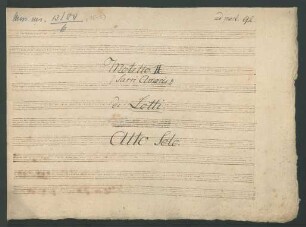 Mus. ms. 13184
6
ad acc. 95.
Motetto II
di Lotti
Alto Solo.